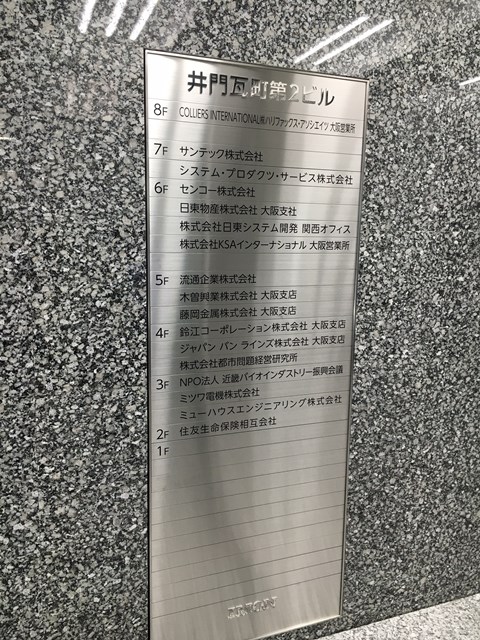 井門瓦町第2ビル
8F COLLIERS INTERNATIONAL㈱ハリファックス・アソシエイツ 大阪営業所
7F サンテック株式会社
システム・プロダクツ・サービス株式会社
6F センコー株式会社
日東物産株式会社 大阪支社
株式会社日東システム開発 関西オフィス
株式会社KSAインターナショナル 大阪営業所
5F 流通企業株式会社
木曽興業株式会社 大阪支店
藤岡金属株式会社 大阪支店
4F 鈴江コーポレーション株式会社 大阪支店
ジャパン バン ラインズ株式会社 大阪支店
株式会社都市問題経営研究所
3F NPO法人 近畿バイオインダストリー振興会議
ミツワ電機株式会社
ミューハウスエンジニアリング株式会社
2F 住友生命保険相互会社
1F